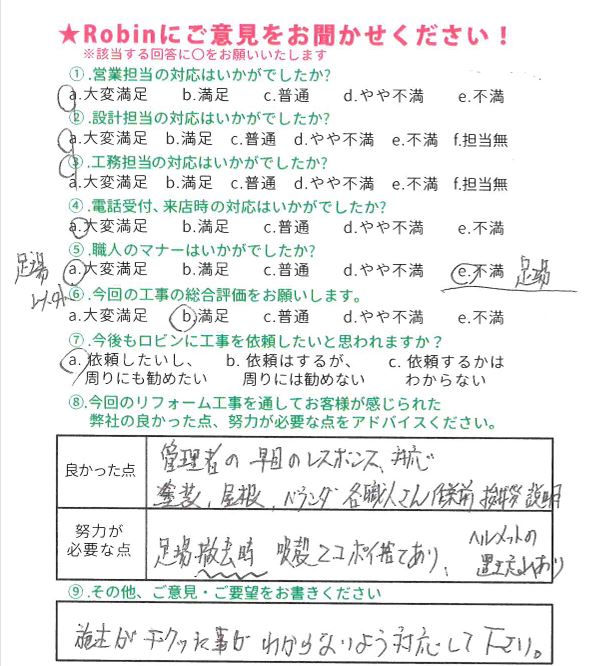 ★Robinにご意見をお聞かせください！
※該当する回答に〇をお願いいたします
①.営業担当の対応はいかがでしたか?
a.大変満足 b.満足 c.普通 d.やや不満 e.不満
②.設計担当の対応はいかがでしたか?
a.大変満足 b.満足 c.普通 d.やや不満 e.不満 f.担当無
③.工務担当の対応はいかがでしたか?
a.大変満足 b.満足 c.普通 d.やや不満 e.不満 f.担当無
④.電話受付、来店時の対応はいかがでしたか?
a.大変満足 b.満足 c.普通 d.やや不満 e.不満
⑤.職人のマナーはいかがでしたか?
足場以外 a.大変満足 b.満足 c.普通 d.やや不満 e.不満 足場
⑥.今回の工事の総合評価をお願いします。
a.大変満足 b.満足 c.普通 d.やや不満 e.不満
⑦.今後もロビンに工事を依頼したいと思われますか？
a. 依頼したいし、 b. 依頼はするが、 c. 依頼するかは
周りにも勧めたい 周りには勧めない わからない
⑧.今回のリフォーム工事を通してお客様が感じられた
弊社の良かった点、努力が必要な点をアドバイスください。
良かった点
管理者の早目のレスポンス、対応
塗装、屋根、ベランダ各職人さん作業前挨拶説明
努力が
必要な点
足場撤去時 吸殻2コポイ捨てあり、ヘルメットの
置き忘れあり
⑨.その他、ご意見・ご要望をお書きください
施主がチクッた事がわからないよう対応して下さい。